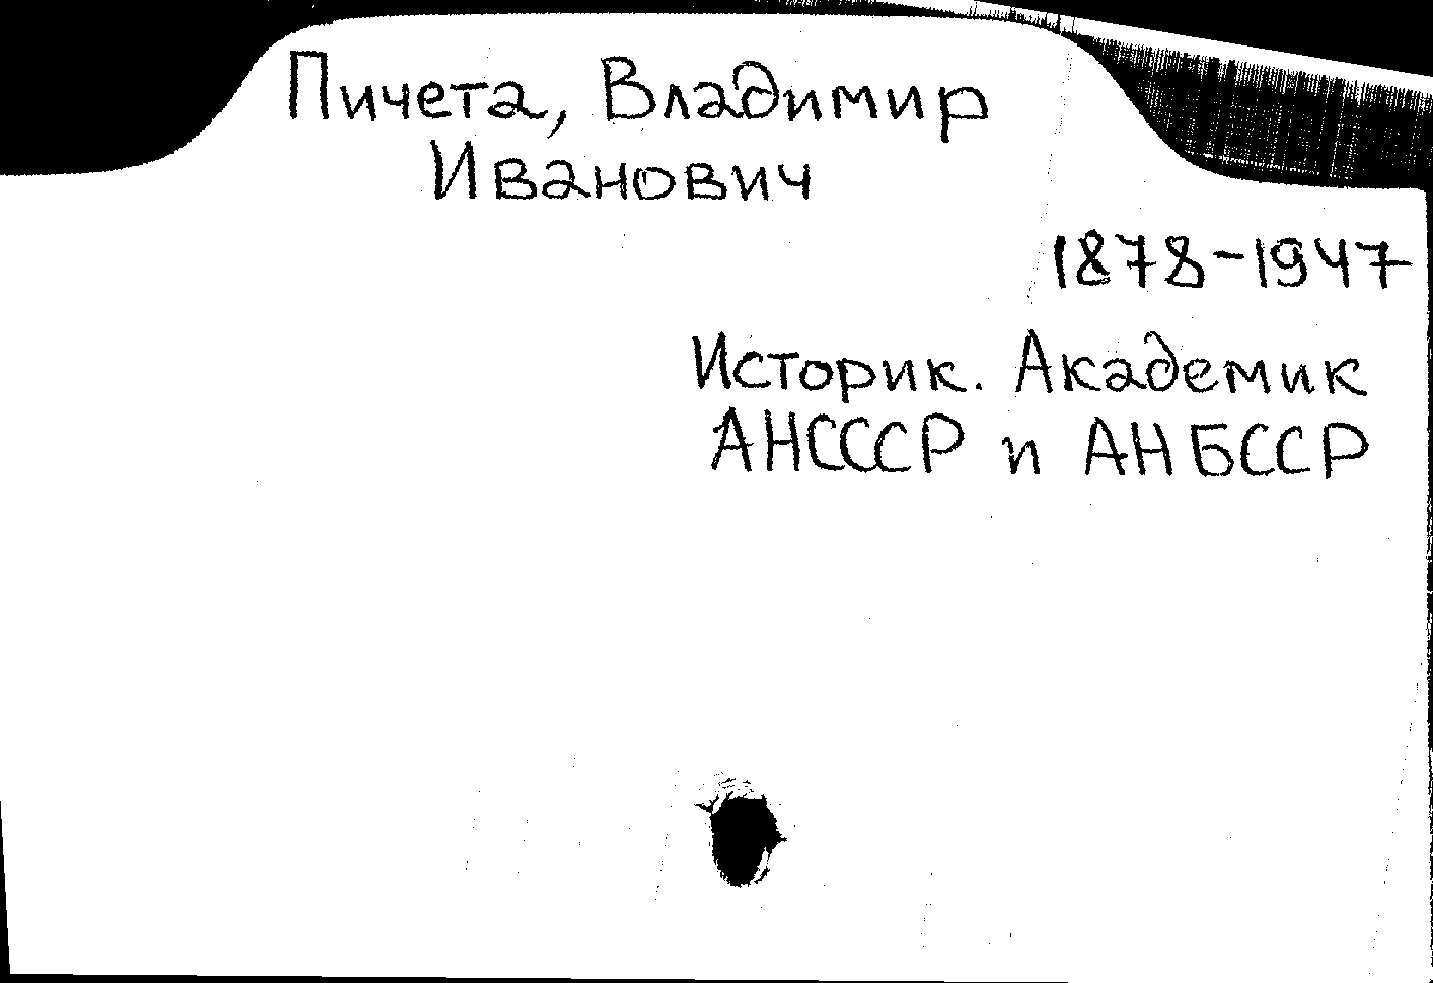 Пичета, Владимир
Иванович
1878-1947
Историк. Академик
АНСССР и АН БССР